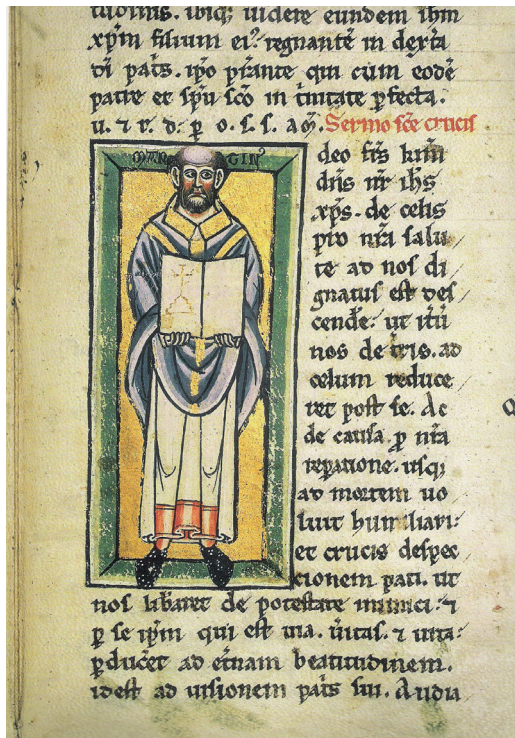 xp̄m filium ei⁹ regnantē in dext̄a
d̄i pat̄s. ip̄o p̄stante qui cum eodē
patre et sp̄u sc̄o in t̄nitate p̄fecta.
u. ⁊ r. d. p̄ o. s. s. am̄. Sermo sc̄e crucis
MAR TIN⁹
deo fr̄s km̄i
dn̄s nr̄ ih̄s
xp̄s. de celis
pro nr̄a salu
te ad nos di
gnatus est des
cende. ut
nos de t̄ris. ad
celum reduce
ret post se. Ac
de causa. p̄ nr̄a
rep̄atione. usq;
ad mortem uo
luit humiliari:
et crucis despec
cionem pati. ut
nos lib̄aret de potestate inimici: ⁊
p̄ se ip̄m qui est uia. ūitas. ⁊ uita:
p̄ducēt ad et̄nam beatitudinem.
idest ad uisionem pat̄s sui. Audia